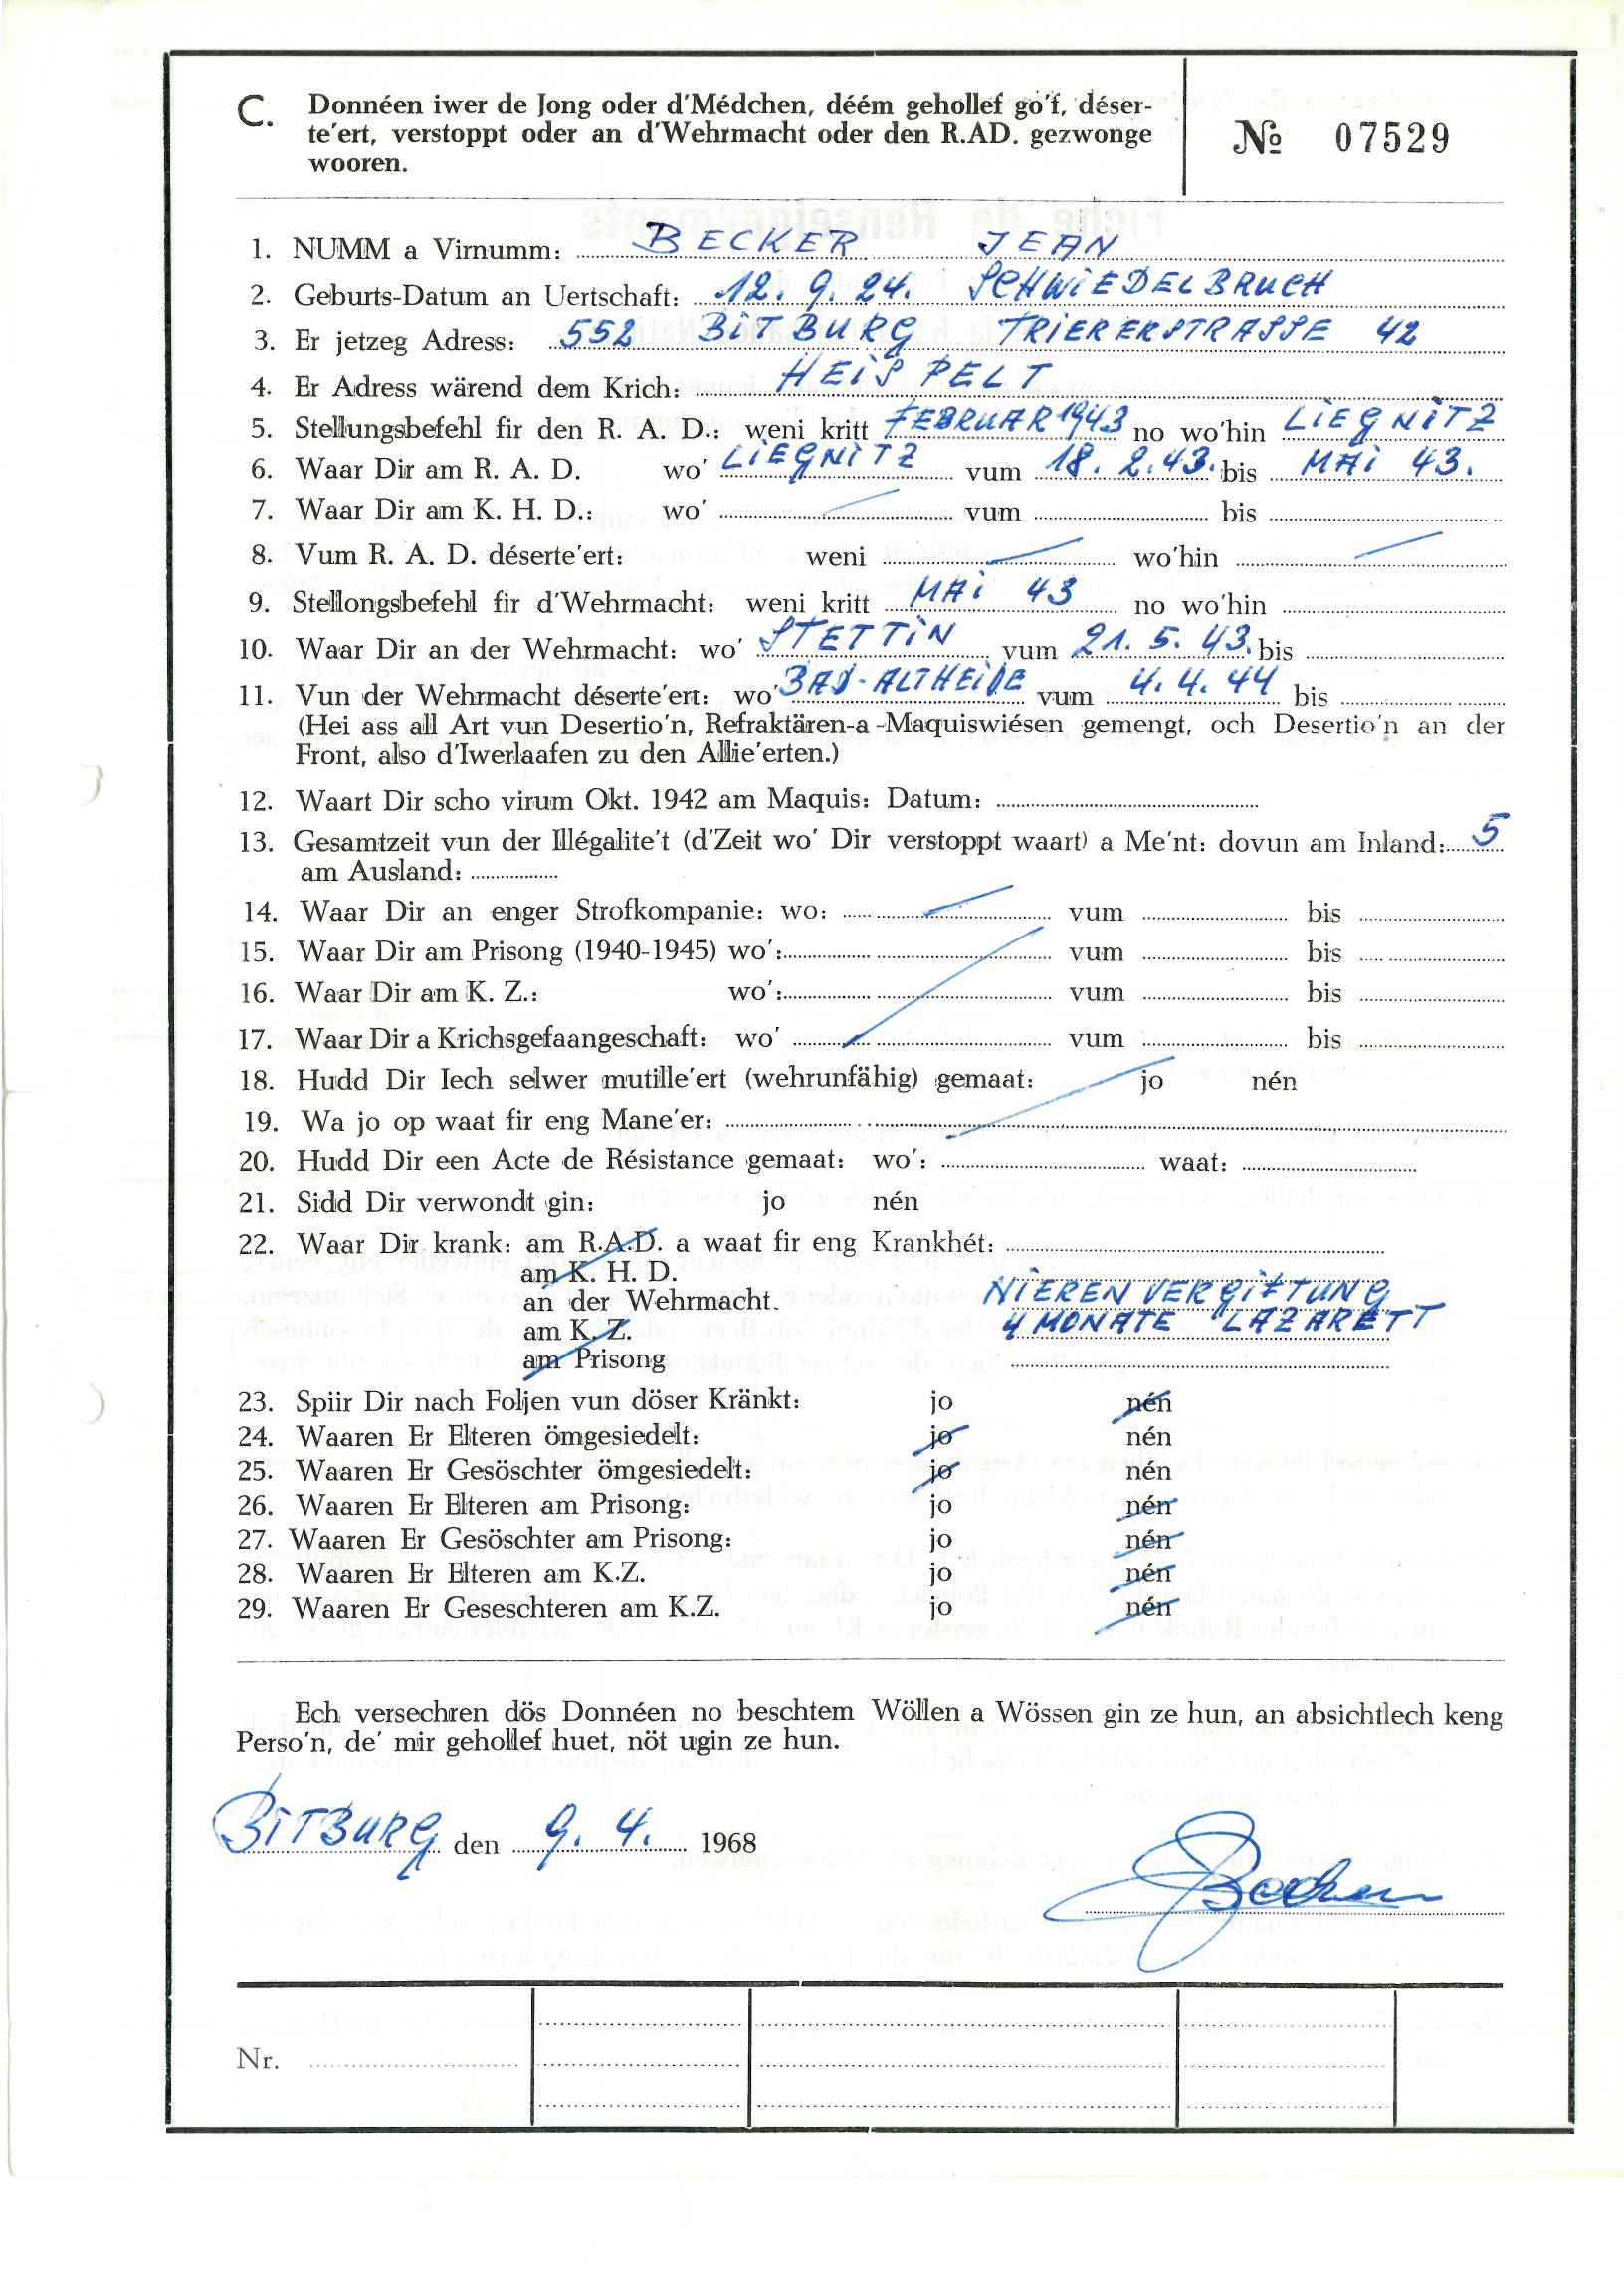 C. Donnéen iwer de Jong oder d'Médchen, déém gehollef go'f, déser-
te'ert, verstoppt oder an d'Wehrmacht oder den R.AD. gezwonge
wooren.
№ 07529
1. NUMM a Virnumm: BECKER JEAN
2. Geburts-Datum an Uertschaft: 12. 9. 24. SCHWiEDELBRUCH
3. Er jetzeg Adress: 552 BiTBURG TRiERERSTRASSE 42
4. Er Adress wärend dem Krich: HEiSPELT
5. Stellungsbefehl fir den R. A. D.: weni kritt FEBRUAR 1943 no wo'hin LiEGNiTZ
6. Waar Dir am R. A. D. wo' LiEGNiTZ vum 18. 2. 43. bis MAi 43.
7. Waar Dir am K. H. D.: wo' vum bis
8. Vum R. A. D. déserte'ert: weni wo'hin
9. Stellongsbefehl fir d'Wehrmacht: weni kritt MAi 43 no wo'hin
10. Waar Dir an der Wehrmacht: wo' STETTiN vum 21. 5. 43. bis
11. Vun der Wehrmacht déserte'ert: wo' BAD-ALTHEiDE vum 4. 4. 44 bis
(Hei ass all Art vun Desertio'n, Refraktären-a -Maquiswiésen gemengt, och Desertio'n an der
Front, also d'Iwerlaafen zu den Allie'erten.)
12. Waart Dir scho virum Okt. 1942 am Maquis: Datum:
13. Gesamtzeit vun der Illégalite't (d'Zeit wo' Dir verstoppt waart) a Me'nt: dovun am Inland: 5
am Ausland:
14. Waar Dir an enger Strofkompanie: wo: vum bis
15. Waar Dir am Prisong (1940-1945) wo': vum bis
16. Waar Dir am K. Z.: wo': vum bis
17. Waar Dir a Krichsgefaangeschaft: wo' vum bis
18. Hudd Dir Iech selwer mutille'ert (wehrunfähig) gemaat: jo nén
19. Wa jo op waat fir eng Mane'er:
20. Hudd Dir een Acte de Résistance gemaat: wo': waat:
21. Sidd Dir verwondt gin: jo nén
22. Waar Dir krank: am R.A.D. a waat fir eng Krankhét:
am K. H. D.
an der Wehrmacht. NiEREN VERGiFTUNG
am K. Z. 4 MONATE LAZARETT
am Prisong
23. Spiir Dir nach Foljen vun döser Kränkt: jo nén
24. Waaren Er Elteren ömgesiedelt: jo nén
25. Waaren Er Gesöschter ömgesiedelt: jo nén
26. Waaren Er Elteren am Prisong: jo nén
27. Waaren Er Gesöschter am Prisong: jo nén
28. Waaren Er Elteren am K.Z. jo nén
29. Waaren Er Geseschteren am K.Z. jo nén
Ech versechren dös Donnéen no beschtem Wöllen a Wössen gin ze hun, an absichtlech keng
Perso'n, de' mir gehollef huet, nöt ugin ze hun.
BiTBURG den 9. 4. 1968
JBecker
Nr.